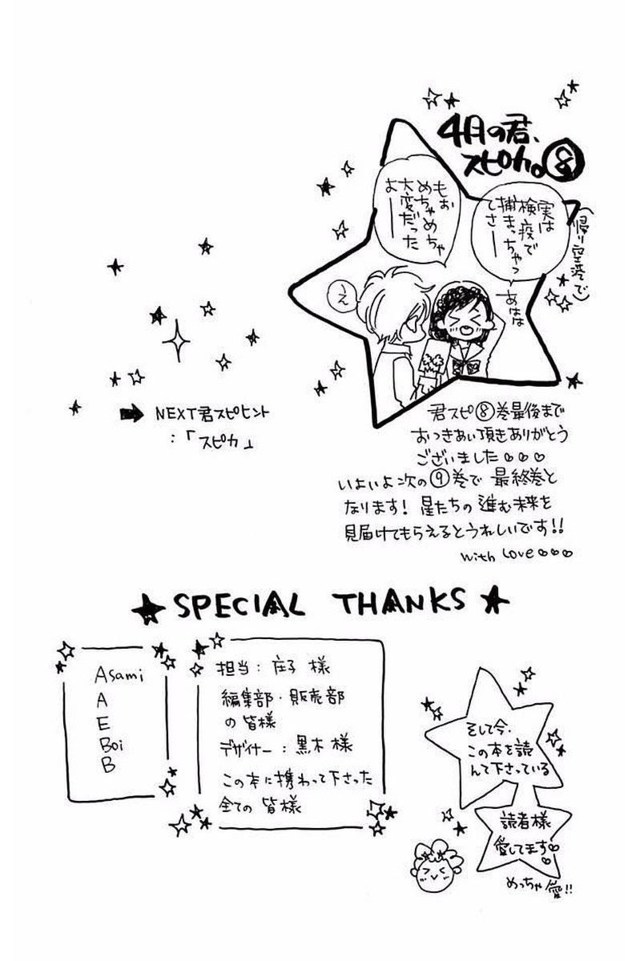 4月の君、
スピカ。⑧
(帰り空港で)
実は
検疫で
捕まっちゃっ
てさー
あはは
もぉ
めちゃめちゃ
大変だった
よー
え
➡ NEXT君スピヒント
:「スピカ」
君スピ⑧巻最後まで
おつきあい頂きありがとう
ございました♡♡♡
いよいよ次の⑨巻で 最終巻と
なります! 星たちの進む未来を
見届けてもらえるとうれしいです!!
with Love♡♡♡
★SPECIAL THANKS★
Asami
A
E
Boi
B
担当:庄子 様
編集部・販売部
の皆様
デザイナー:黒木 様
この本に携わって下さった
全ての 皆様
そして今、
この本を読
んで下さっている
読者様
愛してます♡♡
めっちゃ愛!!